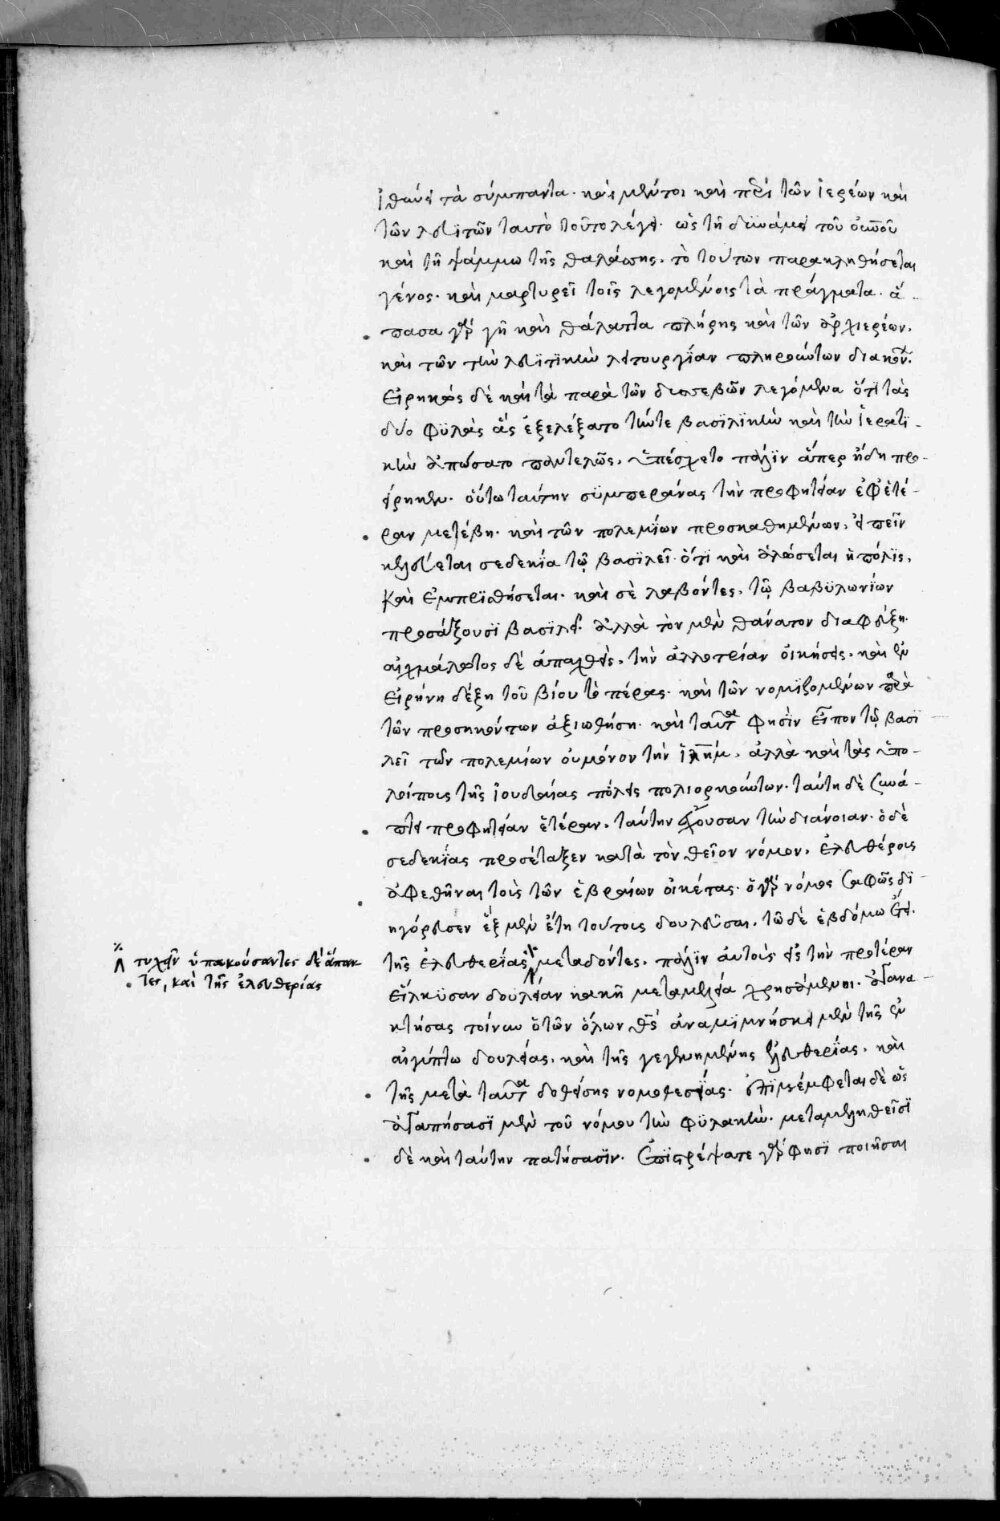 ἰθύνει τὰ σύμπαντα. καὶ μέντοι καὶ περὶ τῶν ἱερέων καὶ
τῶν λευϊτῶν ταυτὸ τοῦτο λέγει. ὡς τῇ δυνάμει τοῦ οὐρανοῦ
καὶ τῇ ψάμμω τῆς θαλάσσης. τὸ τούτων παρακληθήσεται
γένος. καὶ μαρτυρεῖ τοῖς λεγομένοις τὰ πράγματα. ἅ-
πασα γὰρ γῆ καὶ θάλαττα πλήρης καὶ τῶν ἀρχιερέων.
καὶ τῶν τὴν λευϊτικὴν λειτουργίαν πληρούντων διακόνων.
Εἰρηκὼς δὲ καὶ τὰ παρὰ τῶν δυσσεβῶν λεγόμενα ὅτι τὰς
δύο φυλὰς ἃς ἐξελέξατο τήν τε βασιλικὴν καὶ τὴν ἱερατι-
κὴν ἀπώσατο παντελῶς. ὑπέσχετο πάλιν ἅπερ ἤδη προ-
είρηκεν. οὕτω ταύτην συμπεράνας τὴν προφητείαν ἐφ' ἑτέ-
ραν μετέβη. καὶ τῶν πολεμίων προσκαθημένων, εἰπεῖν
κελεύεται σεδεκία τῷ βασιλεῖ. ὅτι καὶ ἁλώσεται ἡ πόλις,
καὶ ἐμπρισθήσεται. καὶ σὲ λαβόντες, τῷ βαβυλωνίων
προσάξουσι βασιλεῖ. ἀλλὰ τὸν μὲν θάνατον διαφεύξη.
αἰχμάλωτος δὲ ἀπαχθεὶς, τὴν ἀλλοτρίαν οἰκήσεις. καὶ ἐν
εἰρήνη δέξη τοῦ βίου τὸ πέρας. καὶ τῶν νομιζομένων παρὰ
τῶν προσηκόντων ἀξιωθήση. καὶ ταῦτα φησὶν εἶπον τῷ βασι-
λεῖ τῶν πολεμίων οὐ μόνον τὴν ἱλημ, ἀλλὰ καὶ τὰς ὑπο-
λοίπους τῆς ἰουδαίας πόλεις πολιορκούντων. ταύτη δὲ συνά-
πτει προφητείαν ἑτέραν, ταύτην ἔχουσαν τὴν διάνοιαν. ὁ δὲ
σεδεκίας προσέταξεν κατὰ τὸν θεῖον νόμον, ἐλευθέρους
ἀφεθῆναι τοὺς τῶν ἑβραίων οἰκέτας. ὁ γὰρ νόμος σαφῶς δι-
ηγόρευσεν ἓξ μὲν ἔτη τούτοις δουλεῦσαι, τῶ δὲ ἑβδόμω ἔτει
τῆς ἐλευθερίας μεταδόντες, πάλιν αὐτοὺς εἰς τὴν προτέραν
εἵλκυσαν δουλείαν κακῇ μεταμελεία χρησάμενοι. ἀγανα-
κτήσας τοίνυν ὁ τῶν ὅλων θς ἀναμιμνήσκει μὲν τῆς ἐν
αἰγύπτω δουλείας, καὶ τῆς γεγενημένης ἐλευθερίας. καὶ
τῆς μετὰ ταῦτα δοθείσης νομοθεσίας. ἐπιμέμφεται δὲ ὡς
ἀγαπήσασι μὲν τοῦ νόμου τὴν φυλακὴν. μεταμεληθεῖσι
δὲ καὶ ταύτην πατήσασιν. Ἐπιστρέψατε γάρ φησι ποιῆσαι
τυχεῖν ὑπακούσαντες δὲ ἅπαν
τες, καὶ τῆς ἐλευθερίας